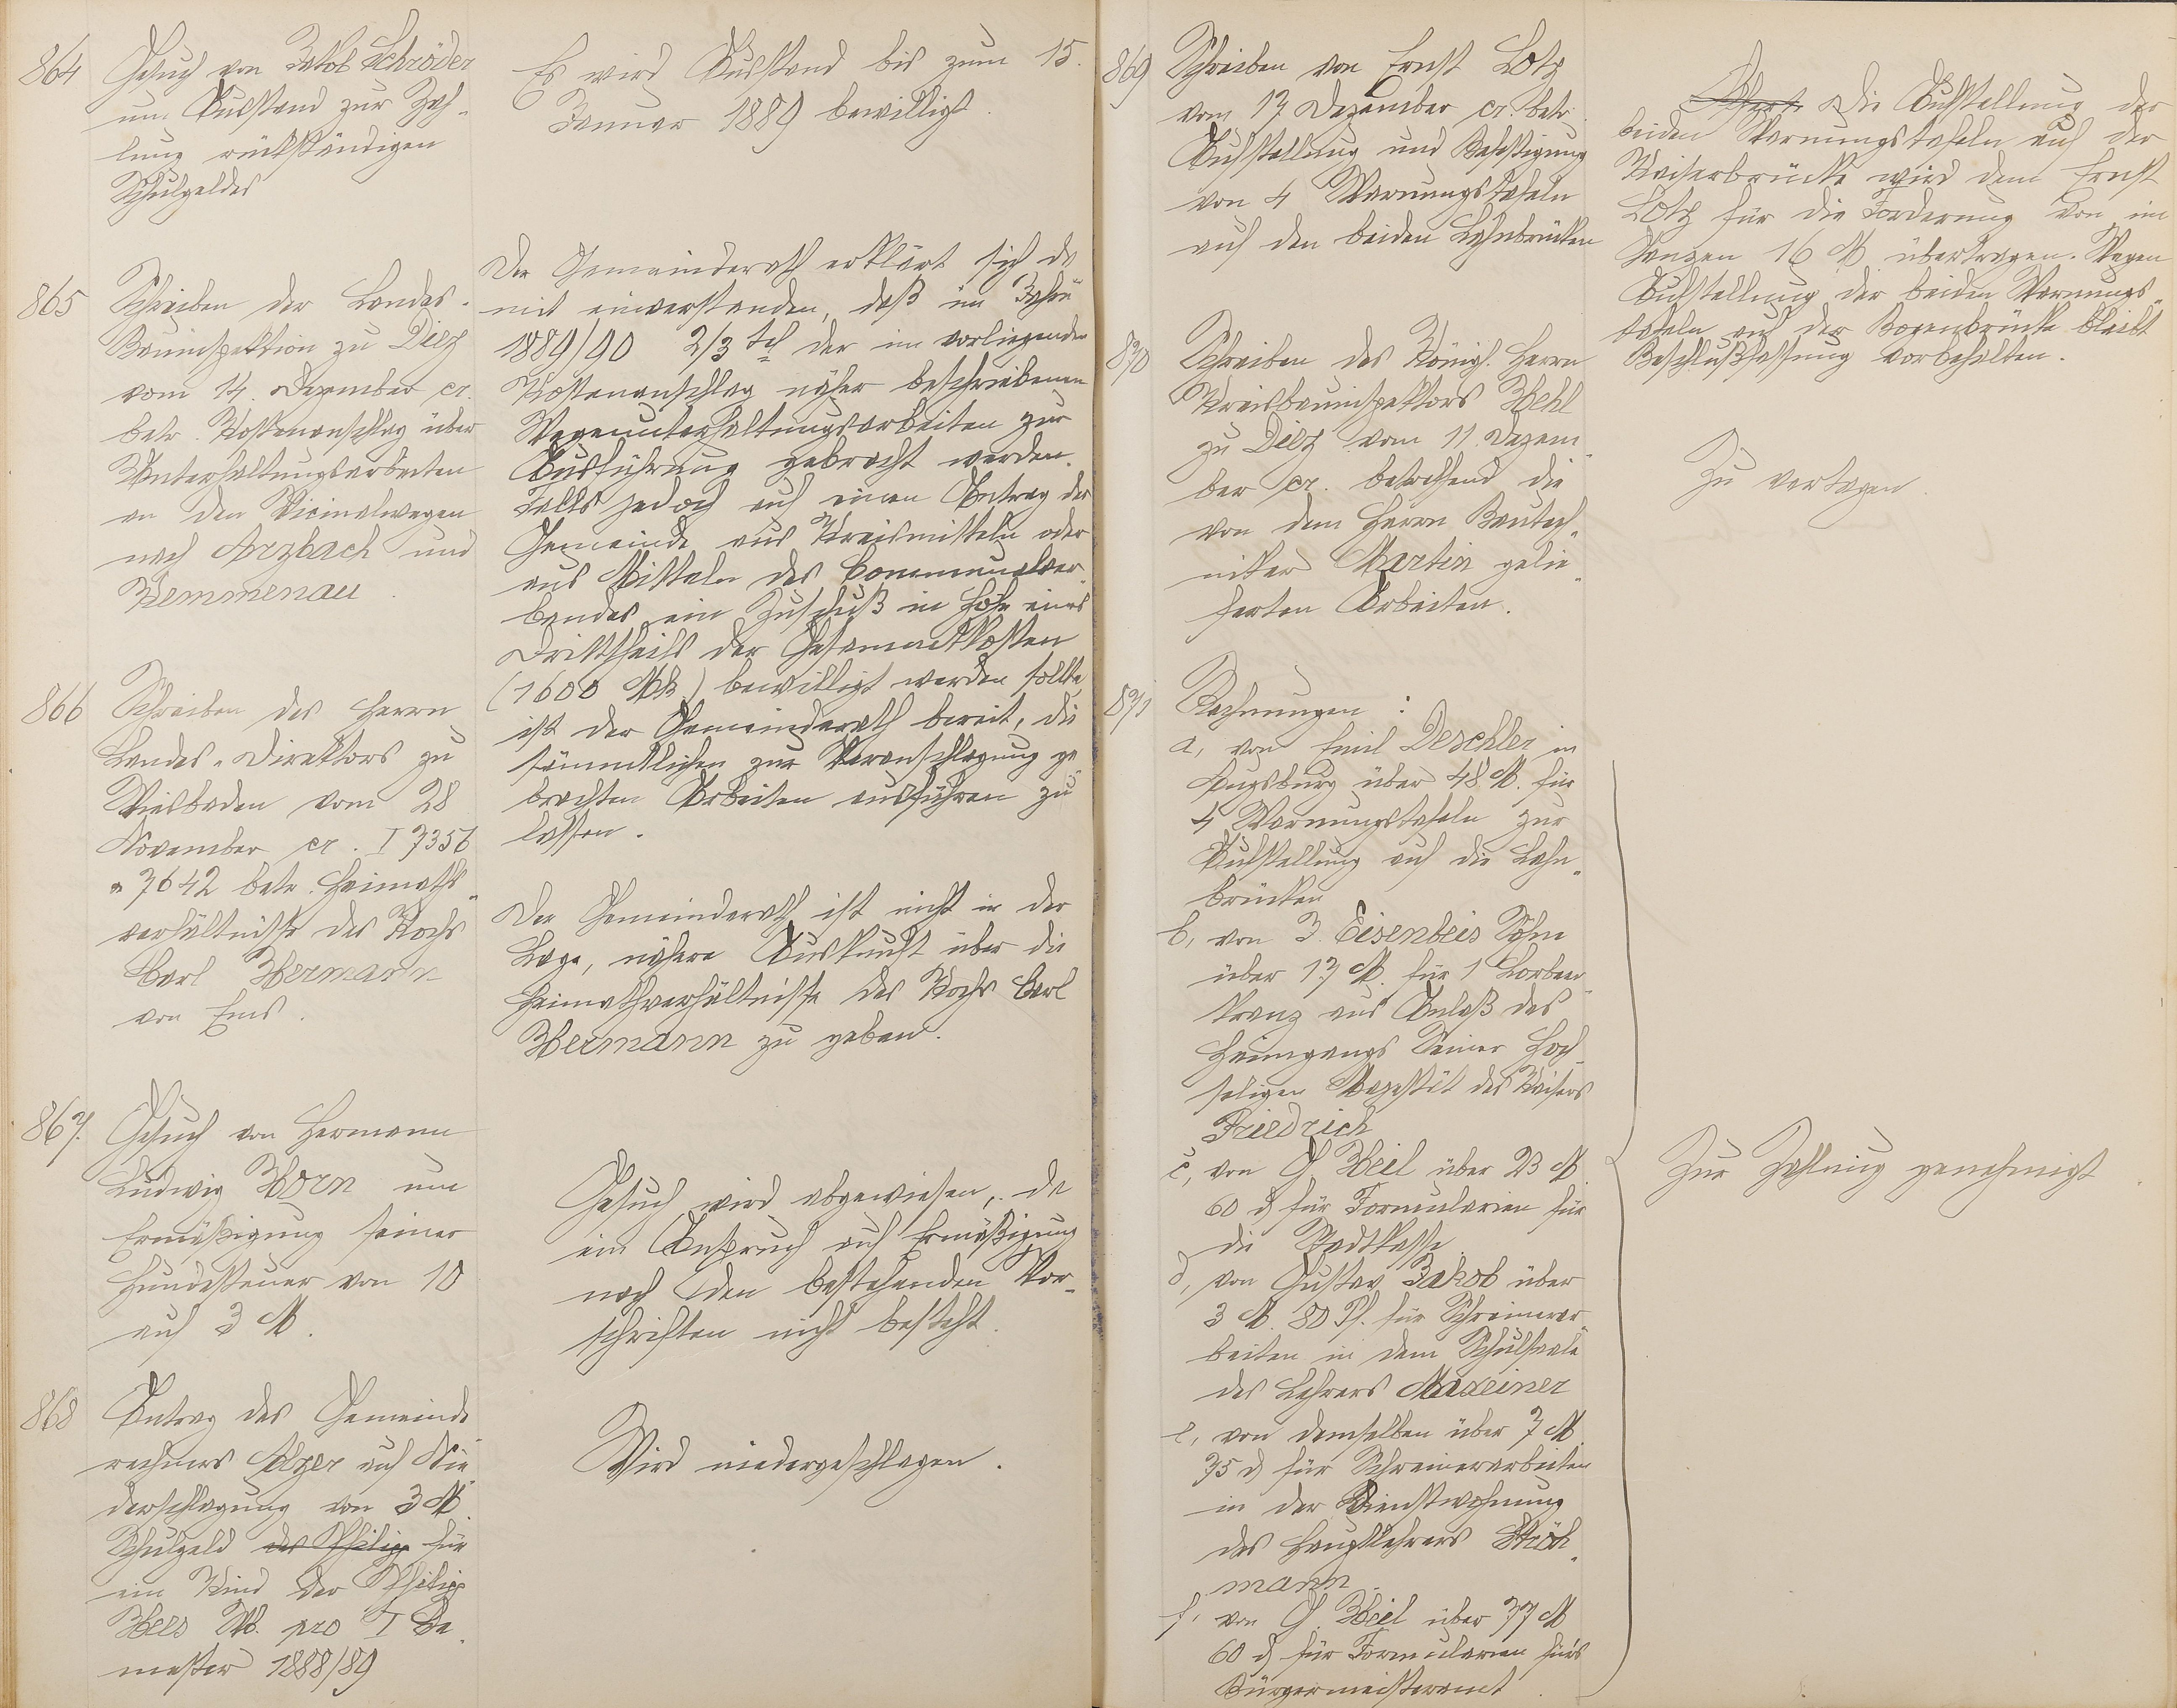 864
Gesuch von Jakob Schröder
um Ausstand zur Zah-
lung rückständigen
Schulgeldes
Es wird Ausstand bis zum 15.
Januar 1889 bewilligt.
865
Schreiben der Landes-
Bauinspektion zu Diez
vom 14. Dezember cr.
betr. Kostenanschlag über
Unterhaltungsarbeiten
an den Vicinalwegen
nach Arzbach und
Kemmenau.
Der Gemeinderath erklärt sich da
mit einverstanden, daß im Jahre
1889/90 2/3 tel der im vorliegenden
Kostenanschlag näher beschriebenen
Wegeunterhaltungsarbeiten zur
Ausführung gebracht werden.
Falls jedoch auf einen Antrag der
Gemeinde aus Kreismitteln oder
aus Mitteln des Communalver-
bandes ein Zuschuß in Höhe eines
Dritttheils der Gesammtkosten
(1600 Mk.) bewilligt werden sollte,
ist der Gemeinderath bereit, die
sämmtlichen zur Veranschlagung ge-
brachten Arbeiten ausführen zu
lassen.
866
Schreiben des Herrn
Landes-Direktors zu
Wiesbaden vom 28
November cr. I 7356
" 7642 betr. Heimaths-
verhältnisse des Kochs
Carl Hermann
von Ems.
Der Gemeinderath ist nicht in der
Lage, nähere Auskunft über die
Heimathverhältnisse des Kochs Carl
Hermann zu geben.
867.
Gesuch von Hermann
Ludwig Horn um
Ermäßigung seiner
Hundesteuer von 10
auf 3 M.
Gesuch wird abgewiesen, da
ein Anspruch auf Ermäßigung
nach den bestehenden Vor-
schriften nicht besteht.
868
Antrag des Gemeinde
rechners Alzer auf Nie-
derschlagung von 3 M.
Schulgeld des Philipp für
ein Kind der Philipp
Hees Wb. pro I Se-
mester 1888/89
Wird niedergeschlagen.
869
Schreiben von Ernst Lotz
vom 17 Dezember cr. betr.
Aufstellung und Befestigung
von 4 Warnungstafeln
auf den beiden Lahnbrücken
Die Aufstellung der
beiden Warnungstafeln auf der
Kaiserbrücke wird dem Ernst
Lotz für die Forderung von im
Ganzen 16 M übertragen. Wegen
Aufstellung der beiden Warnungs-
tafeln auf der Bogenbrücke bleibt
Beschlußfassung vorbehalten.
870
Schreiben des Königl. Herrn
Kreisbauinspektors Hehl
zu Diez vom 11. Dezem-
ber cr. betreffend die
von dem Herrn Bautech-
niker Martin gelie-
ferten Arbeiten.
Zu vertagen.
871
Rechnungen:
a, von Emil Deschler in
Augsburg über 48 M. für
4 Warnungstafeln zur
Aufstellung auf die Lahn-
brücken
b, von J. Eisenbeis Sohn
über 17 M. für 1 Lorbeer-
kranz aus Anlaß des
Heimgangs Seiner Hoch-
seligen Majestät des Kaisers
Friedrich
c, von G Heil über 23 M
60 d für Formularien für
die Stadtkasse.
d, von Gustav Jakob über
3 M. 80 Pf. für Schreinerar-
beiten in dem Schulsaale
des Lehrers Maxeiner
e, von demselben über 7 M.
75 d für Schreinerarbeiten
in der Dienstwohnung
des Hauptlehrers Ströh-
mann.
f, von G. Heil über 77 M
60 d für Formularien für's
Bürgermeisteramt.
Zur Zahlung genehmigt.